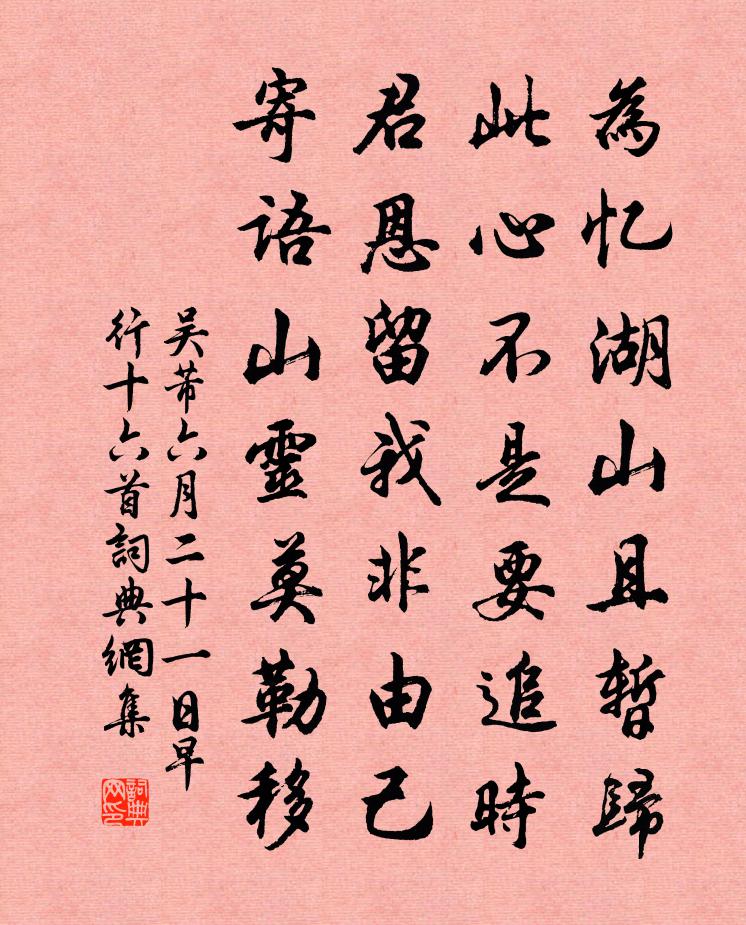 為忆湖山且暫歸
此心不是要追時
君恩留我非由己
寄語山靈莫勒移
吴芾六月二十一日早
行十六首詞典網集
詞典
网印